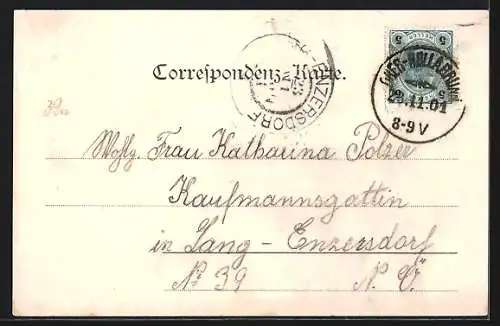 5 5
OBER-HOLLABRUNN
25.11.01
8-9V
ENZERSDORF
Correspondenz-Karte.
Wohlg. Frau Katharina Polzer
Kaufmannsgattin
in Lang-Enzersdorf
No 39 N. Ö.